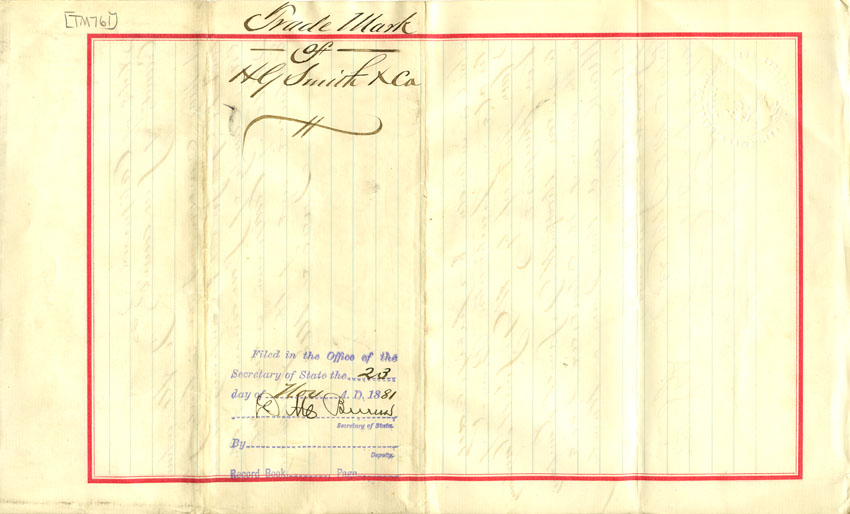 [TM761]
Trade Mark
of
H G Smith & Co
Filed in the Office of the
Secretary of State the 23
day of Nov A. D. 1881
Burns
Secretary of State.
By
Deputy.
Record Book Page